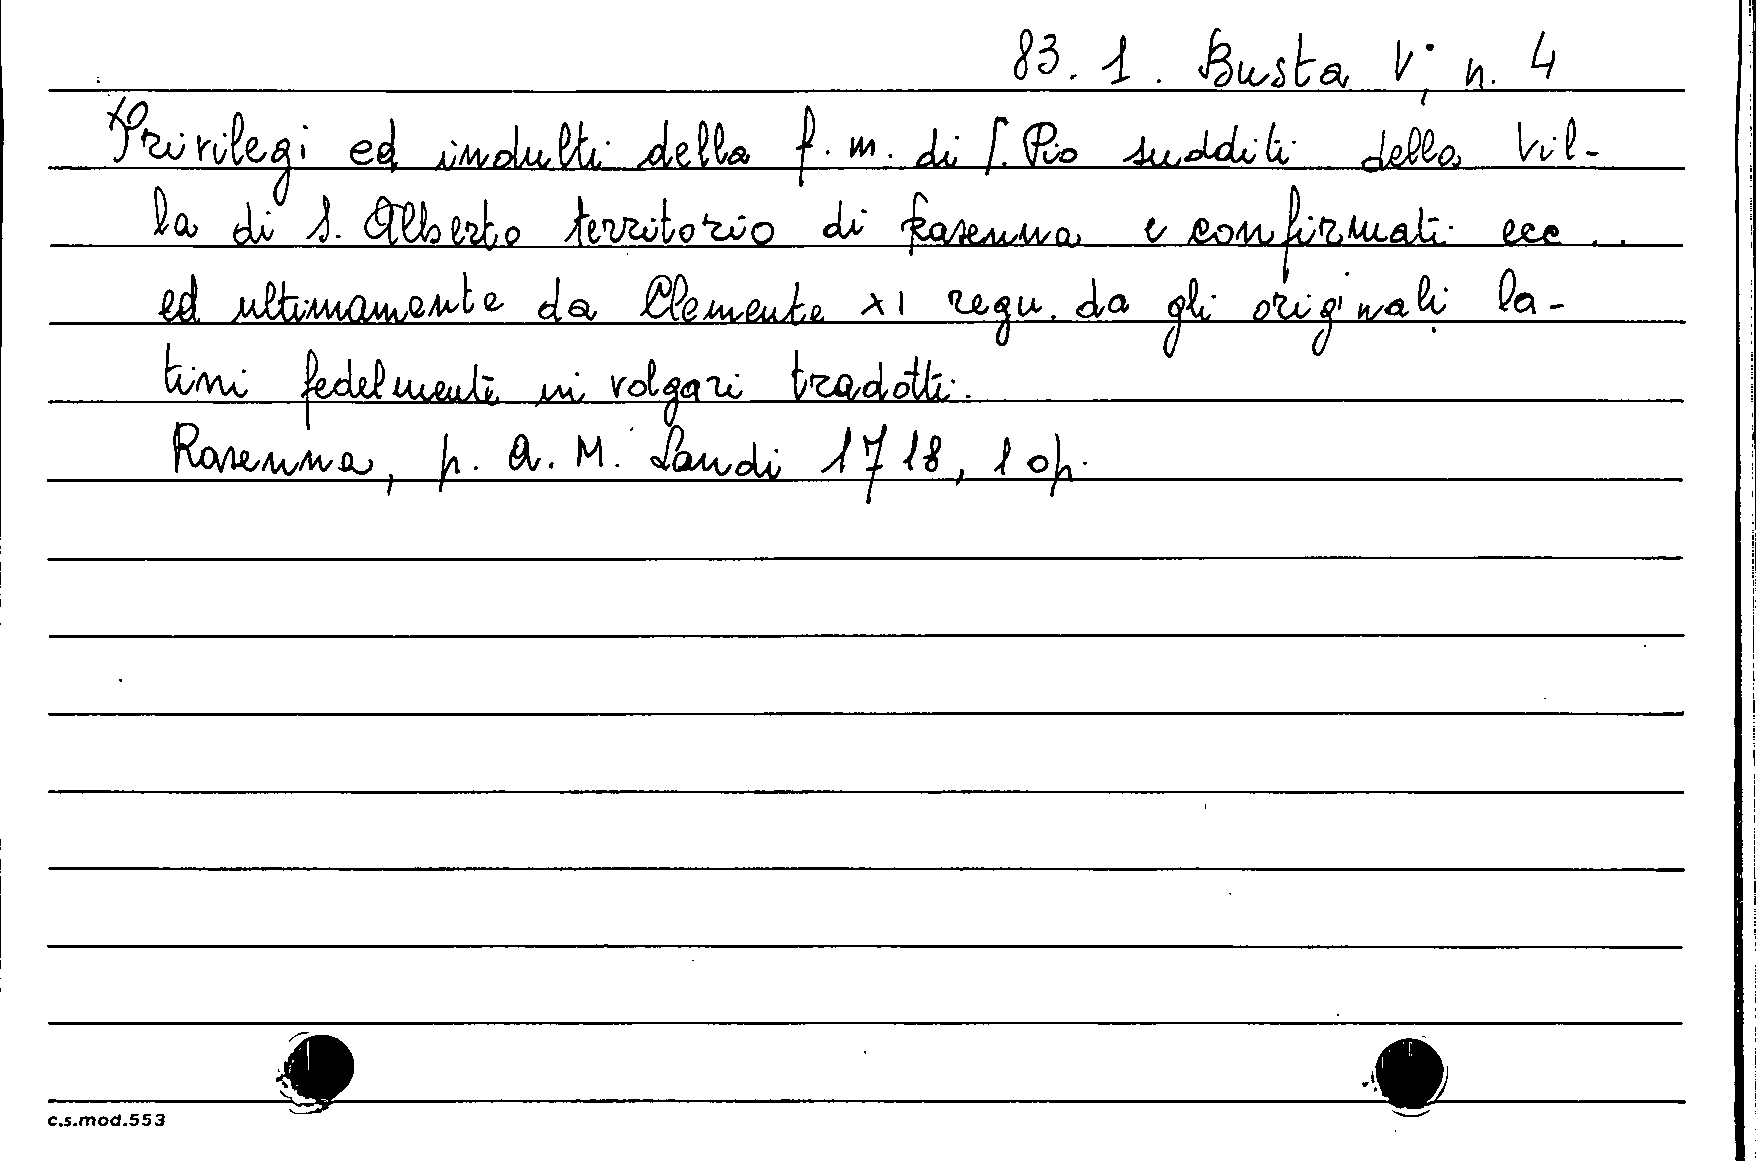 83. 1. Busta V, n. 4
Privilegi ed indulti della f. m. di S. Pio sudditi della Vil-
la di S. Alberto territorio di Ravenna e confirmati ecc..
ed ultimamente da Clemente XI regn. da gli originali la-
tini fedelmente in volgari tradotti.
Ravenna, p. A. M. Landi 1718, 1 op.
c.s.mod.553